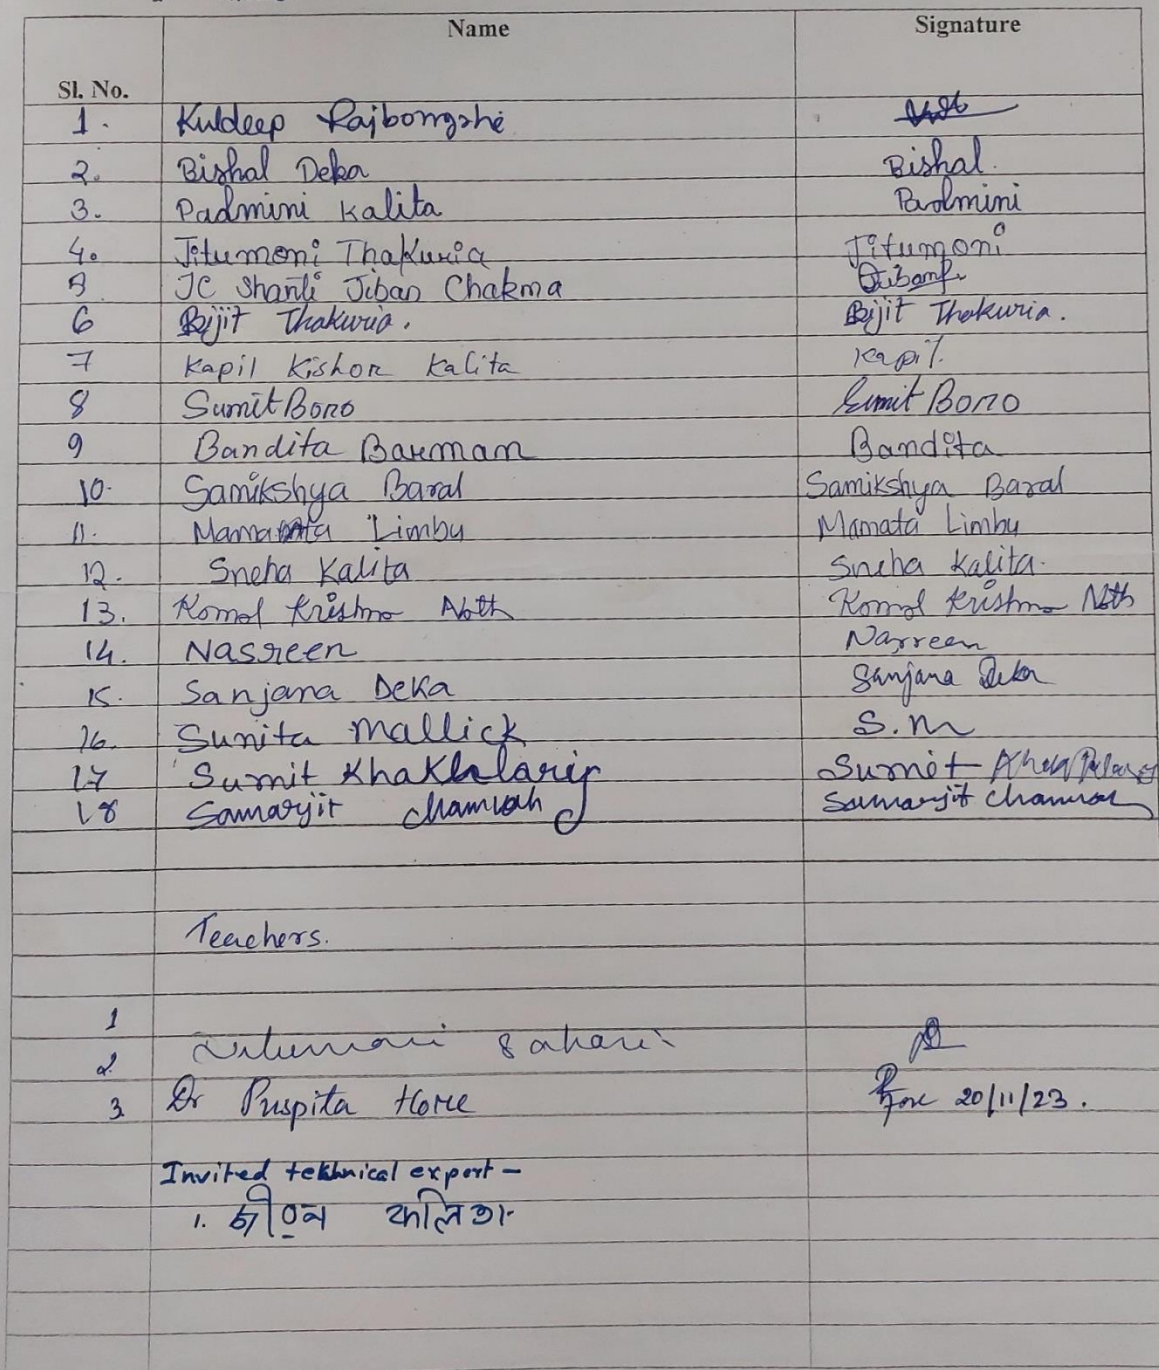 Name Signature
Sl. No.
1. Kuldeep Rajbongshi
2. Bishal Deka Bishal.
3. Padmini Kalita Padmini
4. Jitumoni Thakuria Jitumoni
5 JC Shanti Jiban Chakma
6 Bijit Thakuria. Bijit Thakuria.
7 Kapil Kishor Kalita Kapil.
8 Sumit Boro Sumit Boro
9 Bandita Barman Bandita
10. Samikshya Baral Samikshya Baral
11. Mamata Limbu Mamata Limbu
12. Sneha Kalita Sneha Kalita.
13. Komol Krishna Nath Komol Krishna Nath
14. Nasreen Nasreen
15. Sanjana Deka Sanjana Deka
16. Sunita Mallick S.M
17 Sumit Khakhlarip Sumit
18 Samarjit Chamuah Samarjit Chamuah
Teachers.
1
2.
3. Dr Puspita Hore Hore 20/11/23.
Invited tekhnical expert –
1. জীৱন কলিতা